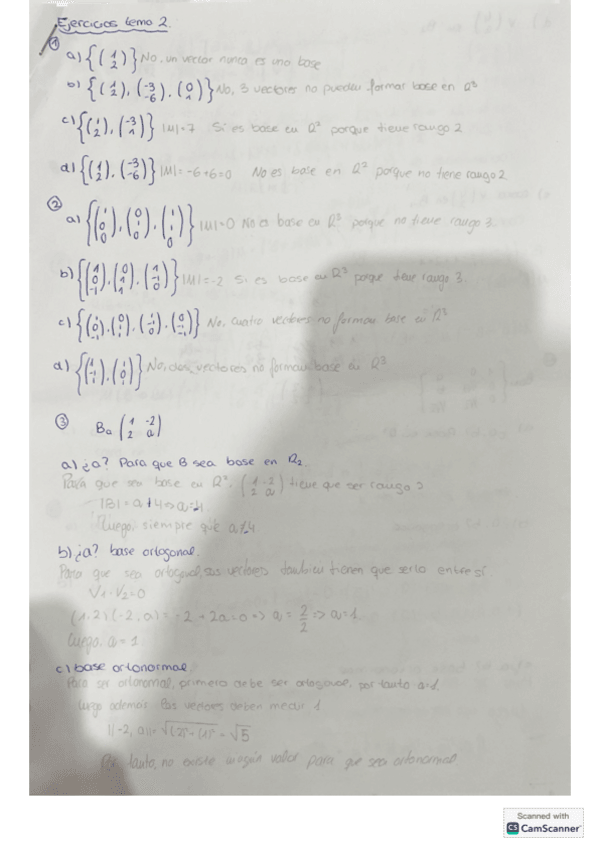 Ejercicios tema 2.
①
a) {(1 2)} No, un vector nunca es una base
b) {(1 2), (-3 -6), (0 1)} No, 3 vectores no pueden formar base en R²
c) {(1 2), (-3 1)} |M|=7 Si es base en R² porque tiene rango 2
d) {(1 2), (-3 -6)} |M|= -6+6=0 No es base en R² porque no tiene rango 2
②
a) {(1 0 0), (0 1 0), (1 1 0)} |M|=0 No es base en R³ porque no tiene rango 3.
b) |M|=-2 Si es base en R³ porque tiene rango 3.
c) No, cuatro vectores no forman base en R³
d) No, dos vectores no forman base en R³
③ Ba (1 -2 2 a)
a) ¿a? Para que B sea base en R2.
Para que sea base en R², (1 -2 2 a) tiene que ser rango 2
|B| = a+4 => a=-4
Luego, siempre que a≠-4
b) ¿a? base ortogonal.
Para que sea ortogonal, sus vectores también tienen que serlo entre sí
V1·V2=0
(1,2)(-2,a) = -2+2a=0 => a= 2/2 => a=1
Luego, a=1
c) base ortonormal.
Para ser ortonormal, primero debe ser ortogonal, por tanto a=1
Luego además los vectores deben medir 1
||-2, a|| = √(2)²+(1)² = √5
Por tanto, no existe ningún valor para que sea ortonormal
Scanned with
CS CamScanner